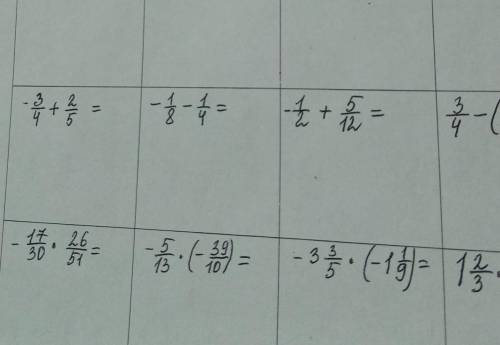 -3/4 + 2/5 = -1/8 - 1/4 = -1/2 + 5/12 = 3/4 - (
-17/30 · 26/51 = -5/13 · (-39/10) = -3 3/5 · (-1 1/9) = 1 2/3 ·